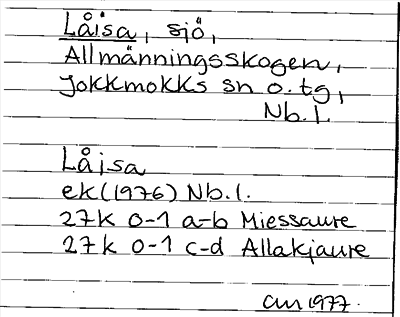 Låisa, sjö,
Allmänningsskogen,
Jokkmokks sn o. tg,
Nb. l.
Låjsa
ek (1976) Nb. l.
27K 0-1 a-b Miessaure
27K 0-1 c-d Allakjaure
1977.